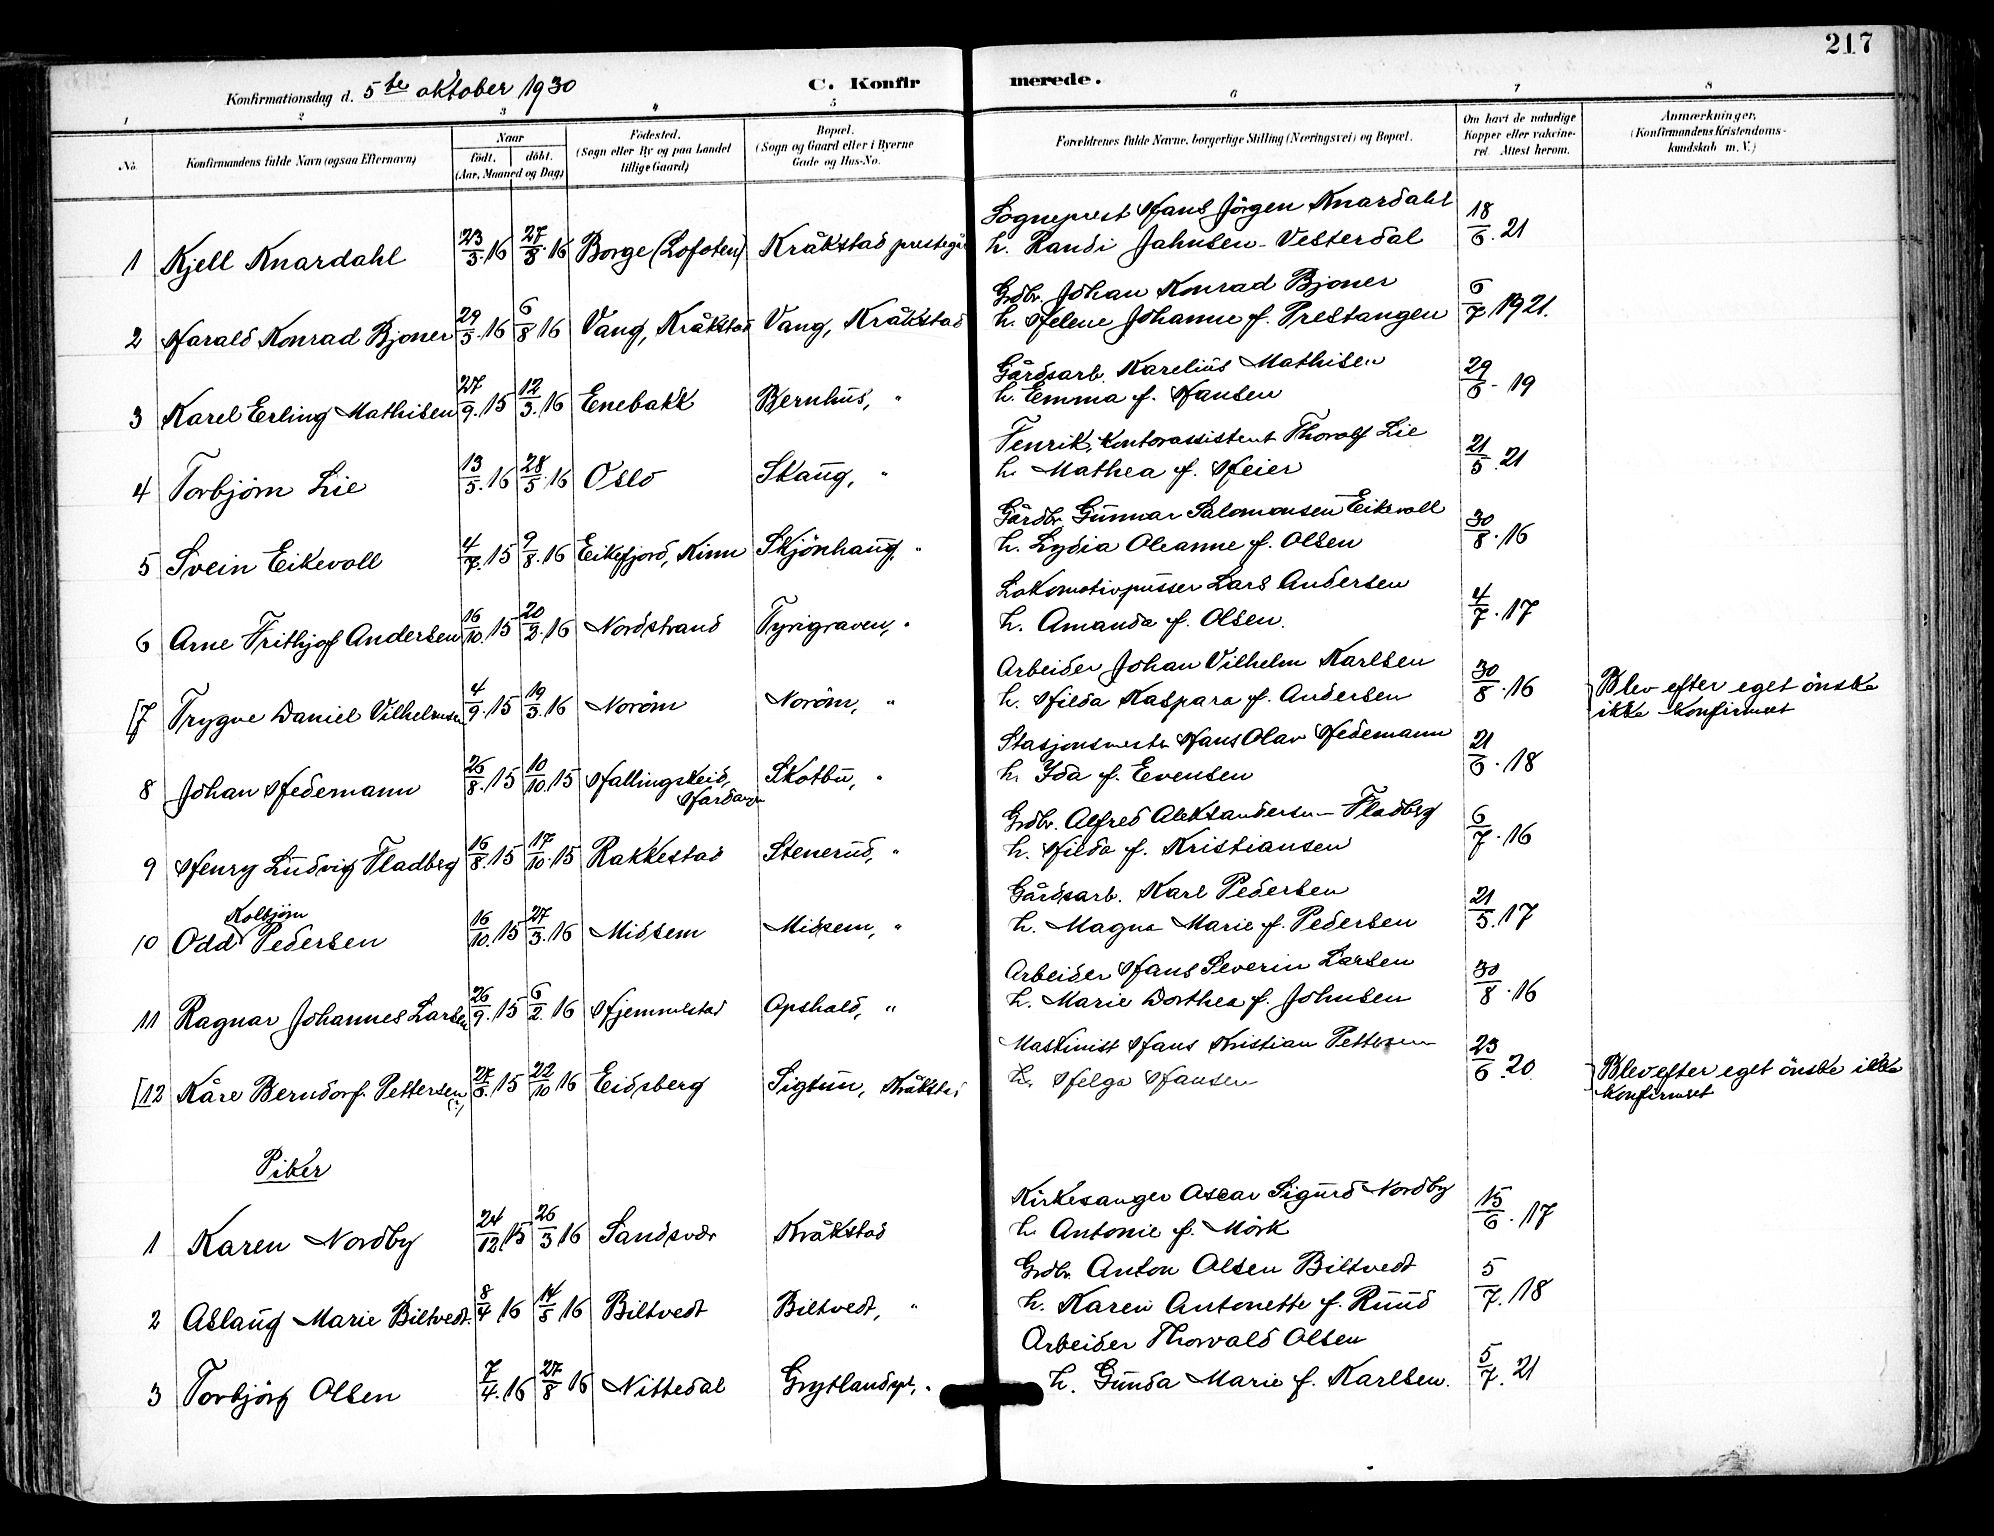 217
Konfirmationsdag d. 5te oktober 1930 C. Konfirmerede.
1 2 3 4 5 6 7 8
No. Konfirmandens fulde Navn (ogsaa Efternavn) Naar født. døbt. (Aar, Maaned og Dag) Fødested. (Sogn eller By og paa Landet tillige Gaard) Bopæl. (Sogn og Gaard eller i Byerne Gade og Hus-No. Forældrenes fulde Navne, borgerlige Stilling (Næringsvei) og Bopæl. Om havt de naturlige Kopper eller vakcineret. Attest herom. Anmærkninger. (Konfirmandens Kristendomskundskab m. V.)
Sogneprest Hans Jörgen Knardahl
1 Kjell Knardahl 23/3.16 27/8.16 Borge (Lofoten) Kråkstad prestegår h. Randi Jahnsen-Vesterdal 18/6.21
Grdbr. Johan Konrad Bjoner
2 Harald Konrad Bjoner 29/5.16 6/8 16 Vang, Kråkstad Vang, Kråkstad h. Helene Johanne f. Prestangen 6/7 1921.
Gårdsarb. Karelius Mathisen
3 Karel Erling Mathisen 27/9.15 12/3.16 Enebakk Bernhus, " h. Emma f. Hansen 29/6-19
Fenrik, kontorassistent Thorolf Lie
4 Torbjörn Lie 13/5.16 28/5.16 Oslo Skaug, " h. Mathea f. Heier 21/5.21
Gårdbr. Gunnar Salomonsen Eikevoll
5 Svein Eikevoll 4/7.15 9/8.16 Eikefjord, Kinn Skjönhaug, " h. Lydia Oleanne f. Olsen 30/8.16
Lokomotivpusser Lars Andersen
6 Arne Frithjof Andersen 16/10.15 20/2.16 Nordstrand Tyrigraven, " h. Amanda f. Olsen. 4/7.17
Arbeider Johan Vilhelm Karlsen
[7 Trygve Daniel Vilhelmsen 4/9.15 19/3.16 Noröm Noröm, " h. Hilda Kaspara f. Andersen 30/8.16 Blev efter eget önske
ikke konfirmert
Stasjonsmester Hans Olav Hedemann
8 Johan Hedemann 26/8.15 10/10.15 Hallingskeid, Hardanger Skotbu, " h. Ida f. Evensen 21/6.18
Grdbr. Alfred Aleksandersen-Fladberg
9 Henry Ludvig Fladberg 16/8.15 17/10.15 Rakkestad Stenerud, " h. Hilda f. Kristiansen 6/7.16
Gårdsarb. Karl Pedersen
10 Odd Kolbjörn Pedersen 16/10.15 27/3.16 Midsem Midsem, " h. Magna Marie f. Pedersen 21/5.17
Arbeider Hans Severin Larsen
11 Ragnar Johannes Larsen 26/9.15 6/2.16 Hjemmelstad Opshald, " h. Marie Dorthea f. Johnsen 30/8.16
Maskinist Hans Kristian Pettersen
[12 Kåre Berndorf Pettersen (?) 15 22/10 16 Eidsberg Sigtun, Kråkstad h. Helga Hansen 23/6.20 Blev efter eget önske ikke
konfirmert
Piker
Kirkesanger Oscar Sigurd Nordby
1 Karen Nordby 24/12.15 26/3.16 Sandsvær Kråkstad h. Antonie f. Mörk 15/6.17
Grdbr. Anton Olsen Biltvedt
2 Aslaug Marie Biltvedt. 8/4 16 14/5 16 Biltvedt Biltvedt, " h. Karen Antonette f. Ruud 5/7.18
Arbeider Thorvald Olsen
3 Torbjörg Olsen 7/4.16 27/8 16 Nittedal Grytlandspl., " h. Gunda Marie f. Karlsen. 5/7.21